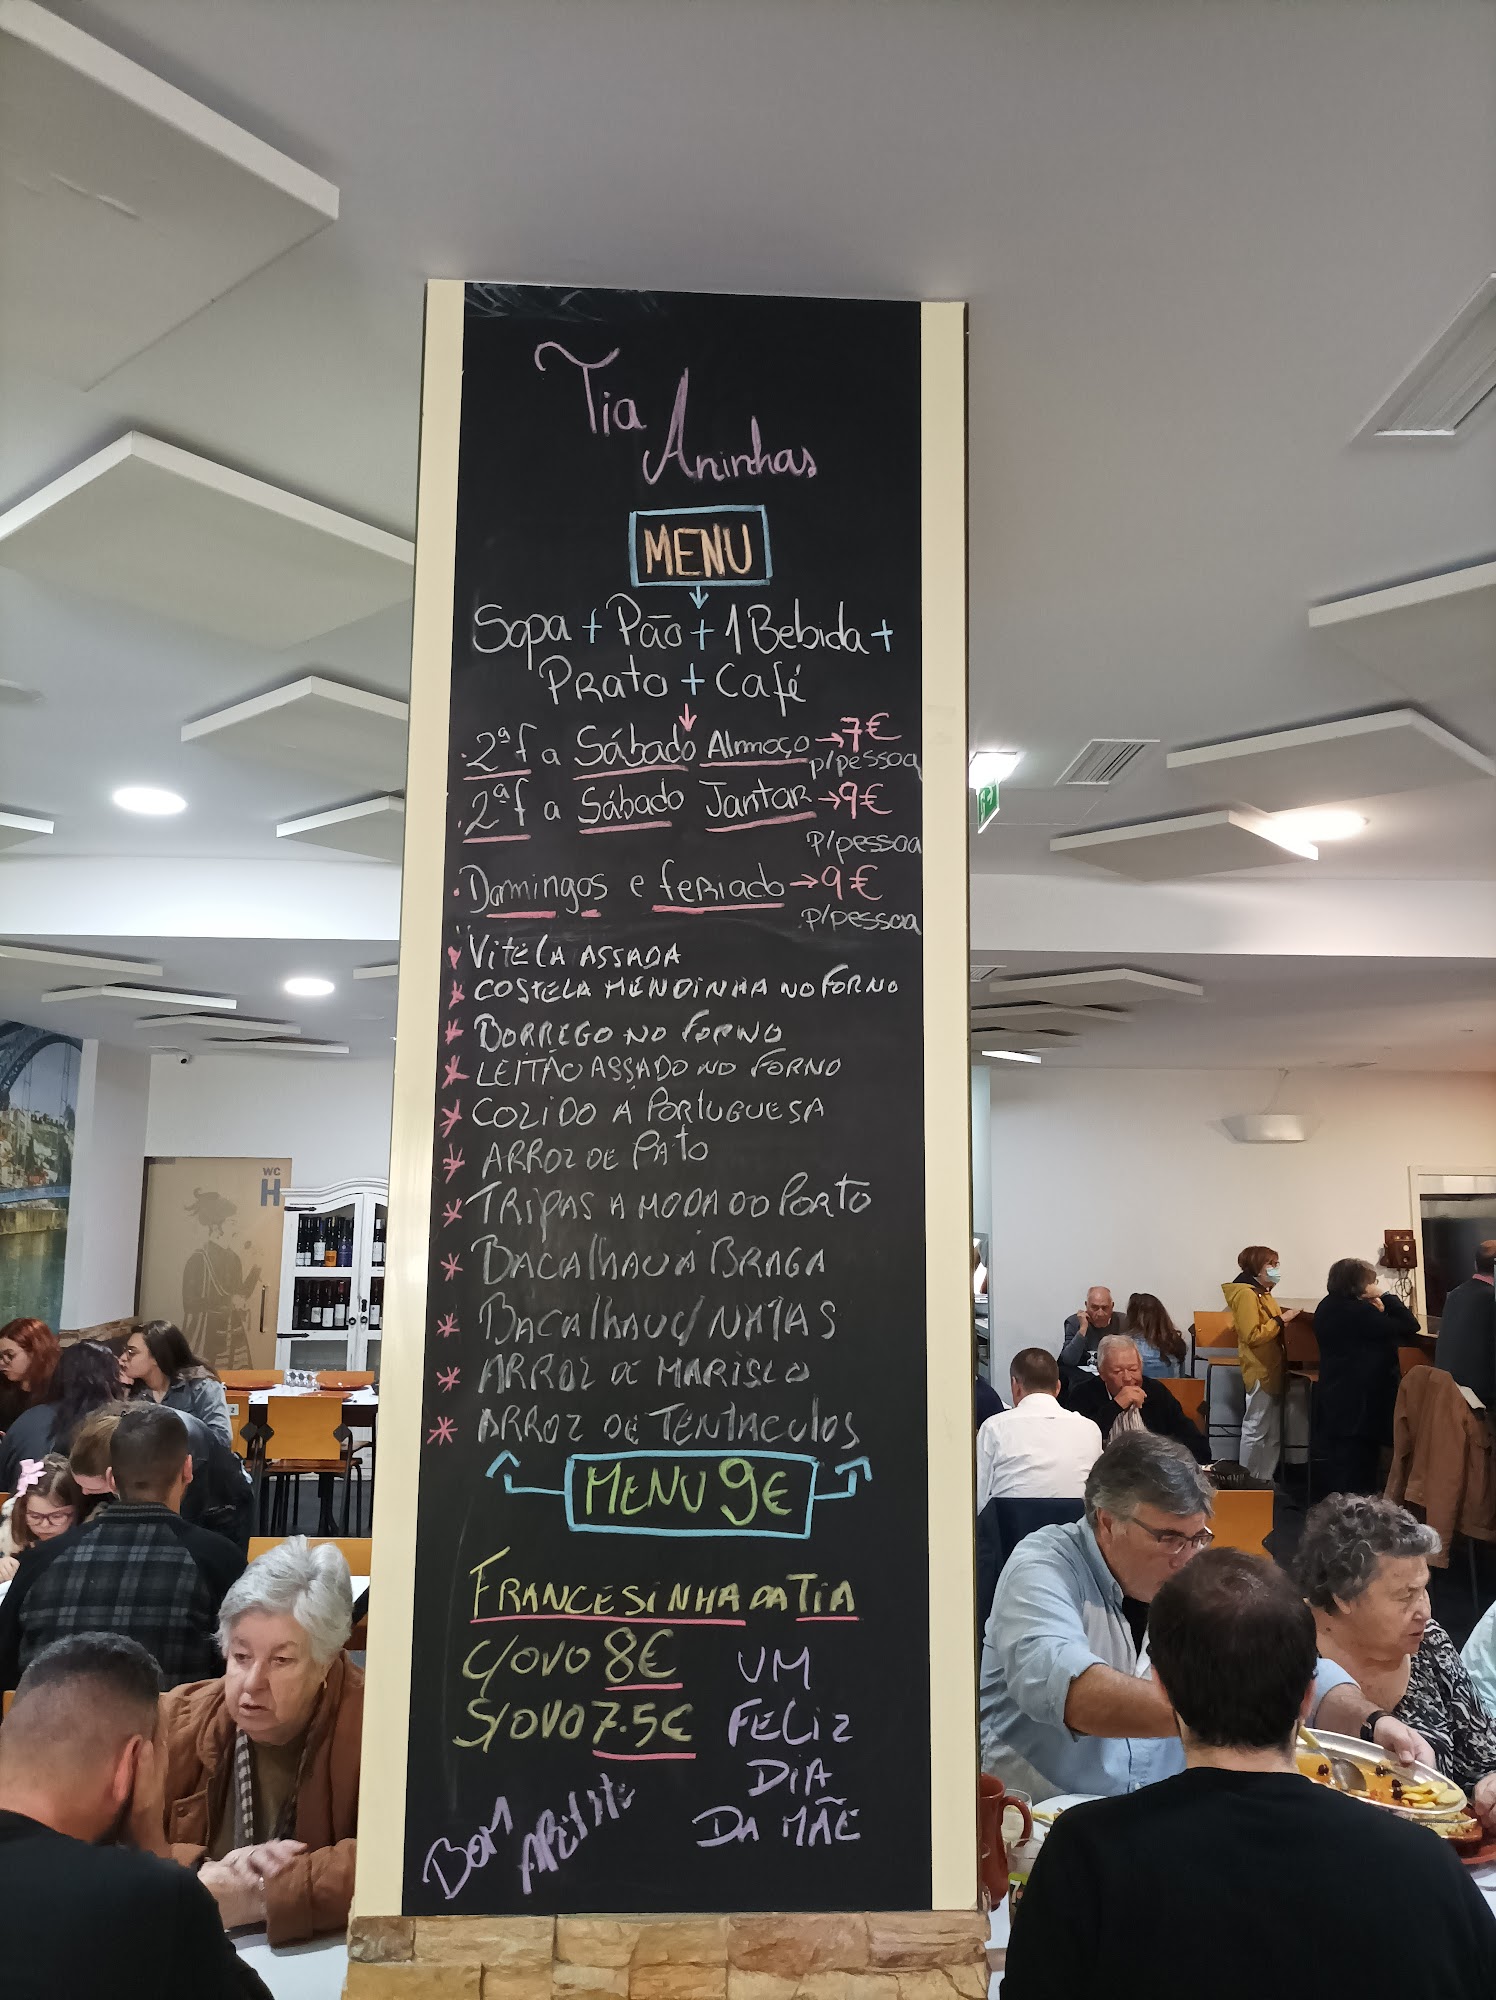 Tia
Aninhas
MENU
Sopa + Pão + 1 Bebida +
Prato + Café
2ªf a Sábado Almoço → 7€
p/pessoa
2ªf a Sábado Jantar → 9€
P/pessoa
Domingos e feriado → 9€
P/pessoa
* VITELA ASSADA
* COSTELA MENDINHA NO FORNO
* BORREGO NO FORNO
* LEITÃO ASSADO NO FORNO
* COZIDO Á PORTUGUESA
* ARROZ DE PATO
* TRIPAS A MODA DO PORTO
* BACALHAU Á BRAGA
* BACALHAU C/ NATAS
* ARROZ DE MARISCO
* ARROZ DE TENTACULOS
MENU 9€
FRANCESINHA DA TIA
C/OVO 8€
S/OVO 7.5€
UM
FELIZ
DIA
DA MÃE
BOM
APETITE
WC
H